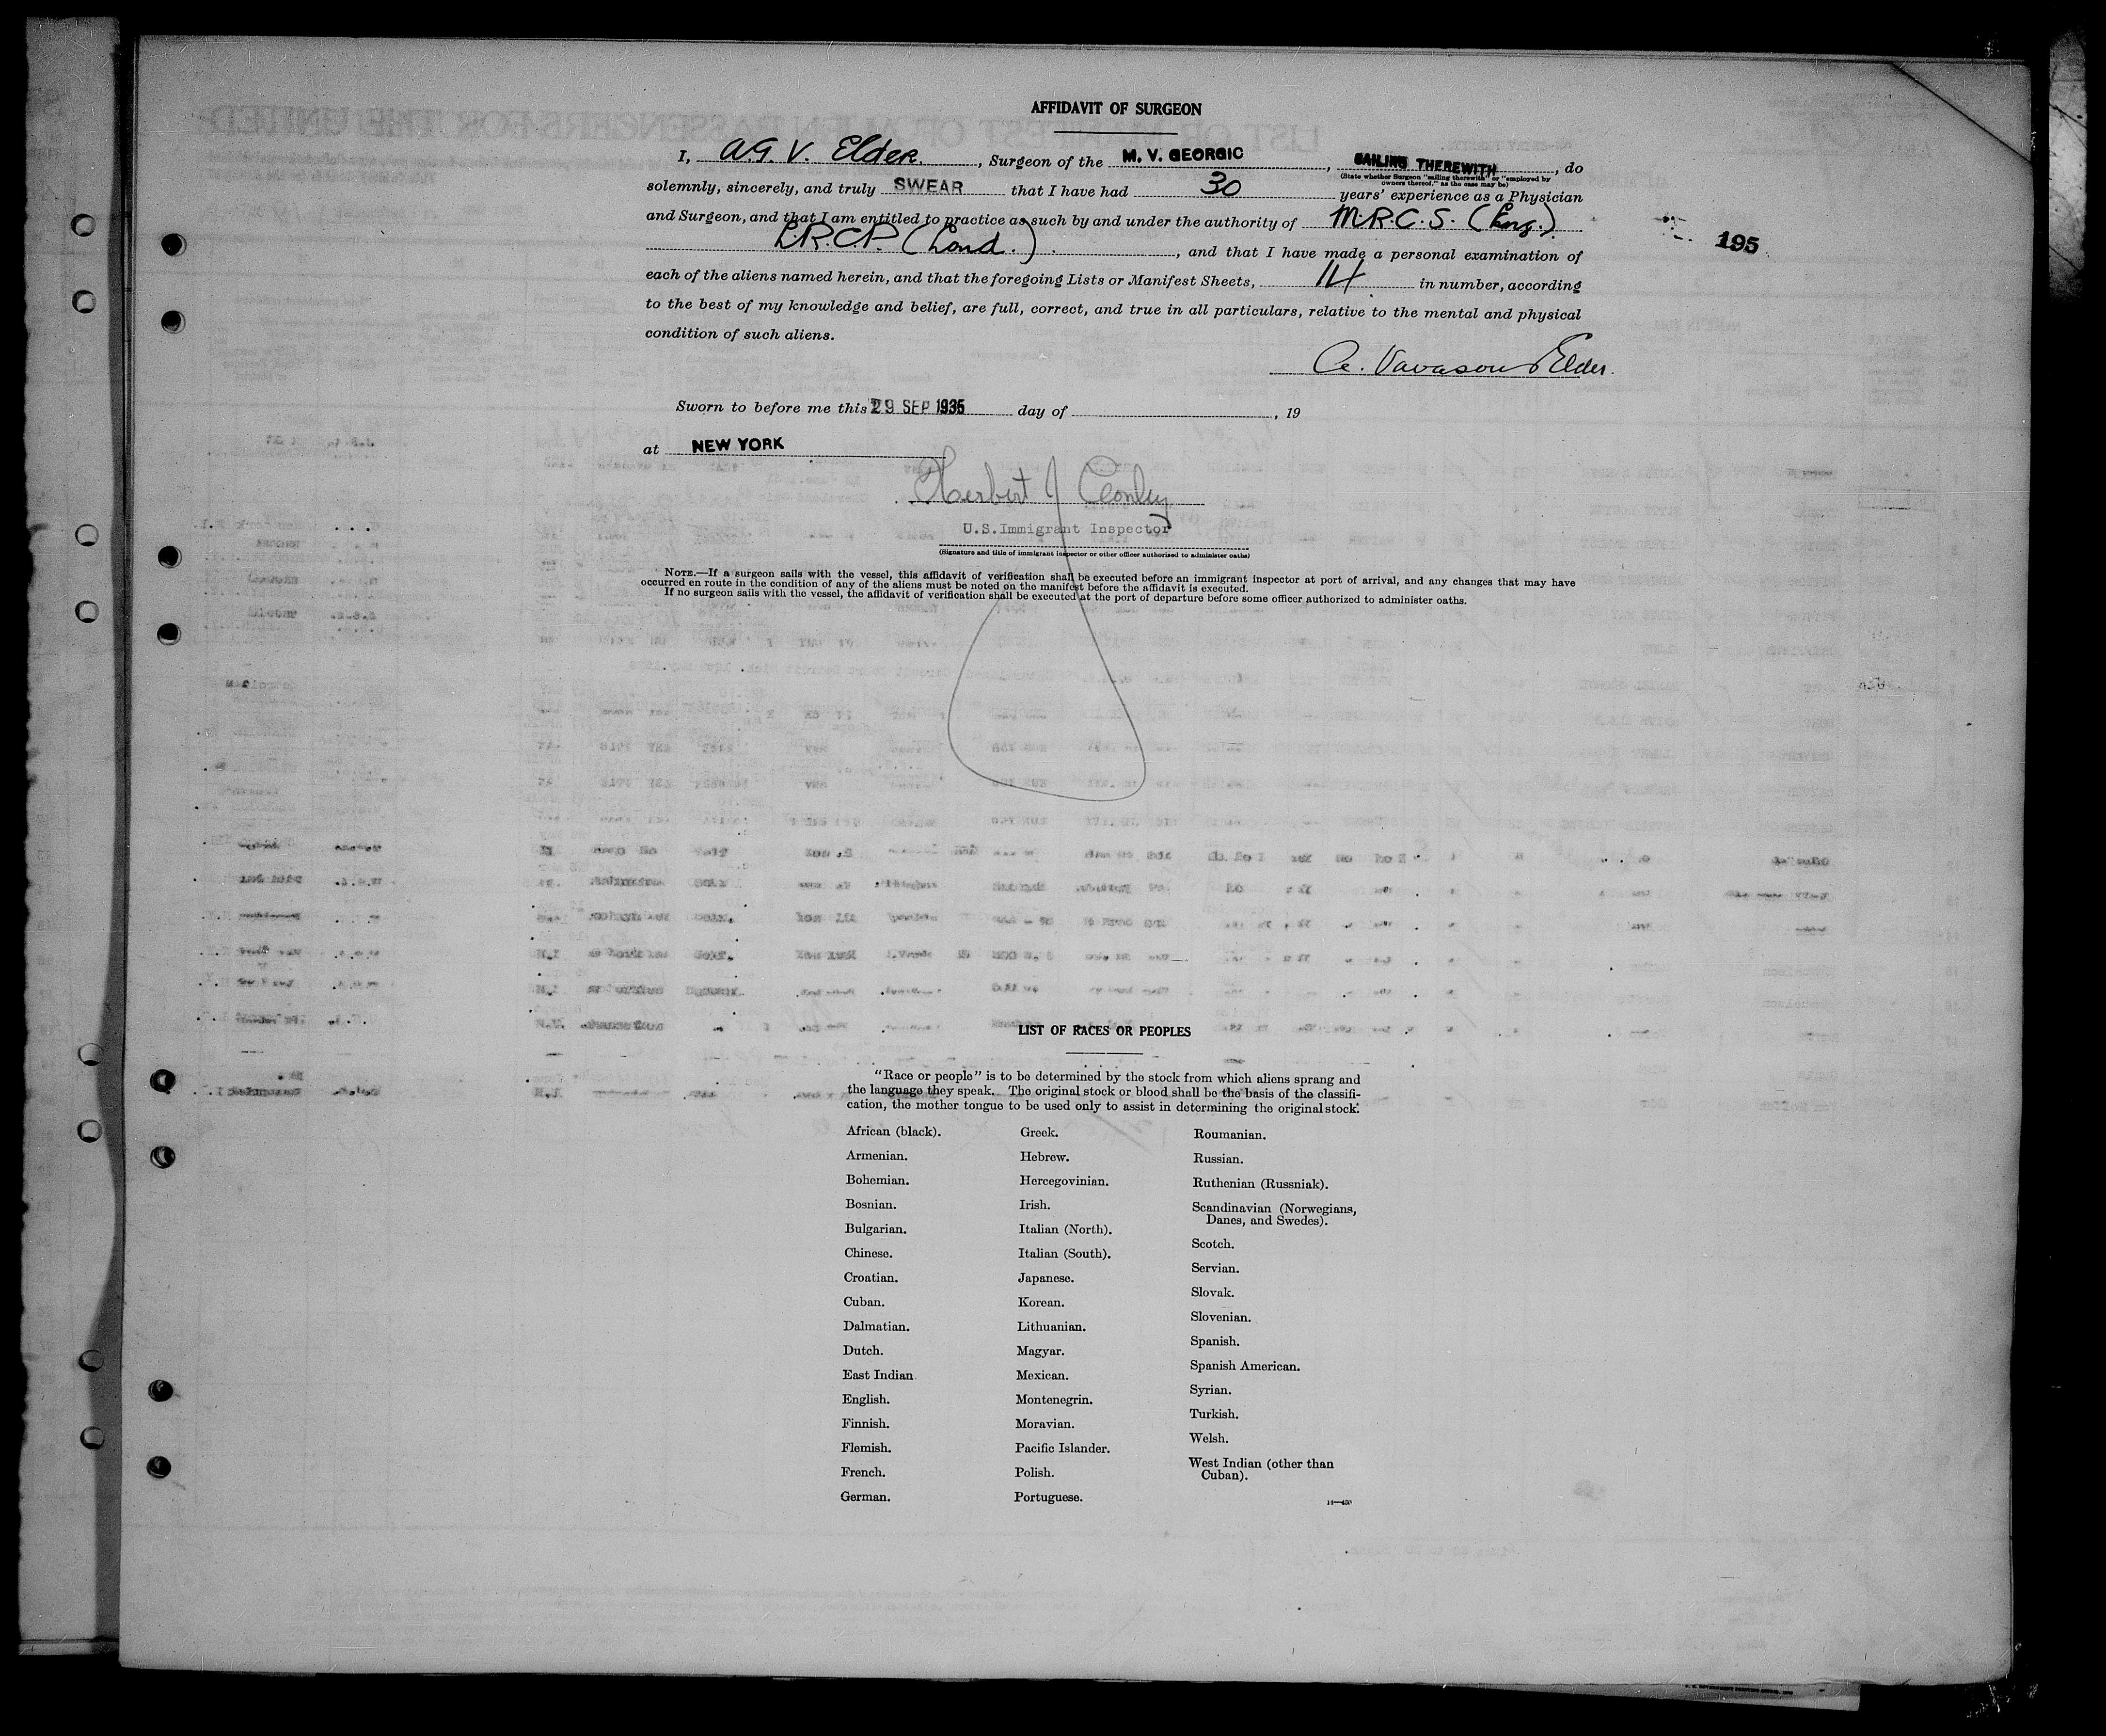 AFFIDAVIT OF SURGEON
I, A.G. V. Elder, Surgeon of the M. V. GEORGIC, SAILING THEREWITH, do
(State whether Surgeon "sailing therewith" or "employed by
owners thereof," as the case may be)
solemnly, sincerely, and truly SWEAR that I have had 30 years' experience as a Physician
and Surgeon, and that I am entitled to practice as such by and under the authority of M.R.C.S. (Eng.)
L.R.C.P. (Lond.), and that I have made a personal examination of
195
each of the aliens named herein, and that the foregoing Lists or Manifest Sheets, 14 in number, according
to the best of my knowledge and belief, are full, correct, and true in all particulars, relative to the mental and physical
condition of such aliens.
A. Vavasour Elder.
Sworn to before me this 29 SEP 1935 day of , 19
at NEW YORK
Herbert J Conley
U.S. Immigrant Inspector
(Signature and title of immigrant inspector or other officer authorized to administer oaths)
NOTE.—If a surgeon sails with the vessel, this affidavit of verification shall be executed before an immigrant inspector at port of arrival, and any changes that may have
occurred en route in the condition of any of the aliens must be noted on the manifest before the affidavit is executed.
If no surgeon sails with the vessel, the affidavit of verification shall be executed at the port of departure before some officer authorized to administer oaths.
LIST OF RACES OR PEOPLES
"Race or people" is to be determined by the stock from which aliens sprang and
the language they speak. The original stock or blood shall be the basis of the classifi-
cation, the mother tongue to be used only to assist in determining the original stock.
African (black).
Armenian.
Bohemian.
Bosnian.
Bulgarian.
Chinese.
Croatian.
Cuban.
Dalmatian.
Dutch.
East Indian
English.
Finnish.
Flemish.
French.
German.
Greek.
Hebrew.
Hercegovinian.
Irish.
Italian (North).
Italian (South).
Japanese.
Korean.
Lithuanian.
Magyar.
Mexican.
Montenegrin.
Moravian.
Pacific Islander.
Polish.
Portuguese.
Roumanian.
Russian.
Ruthenian (Russniak).
Scandinavian (Norwegians,
Danes, and Swedes).
Scotch.
Servian.
Slovak.
Slovenian.
Spanish.
Spanish American.
Syrian.
Turkish.
Welsh.
West Indian (other than
Cuban).